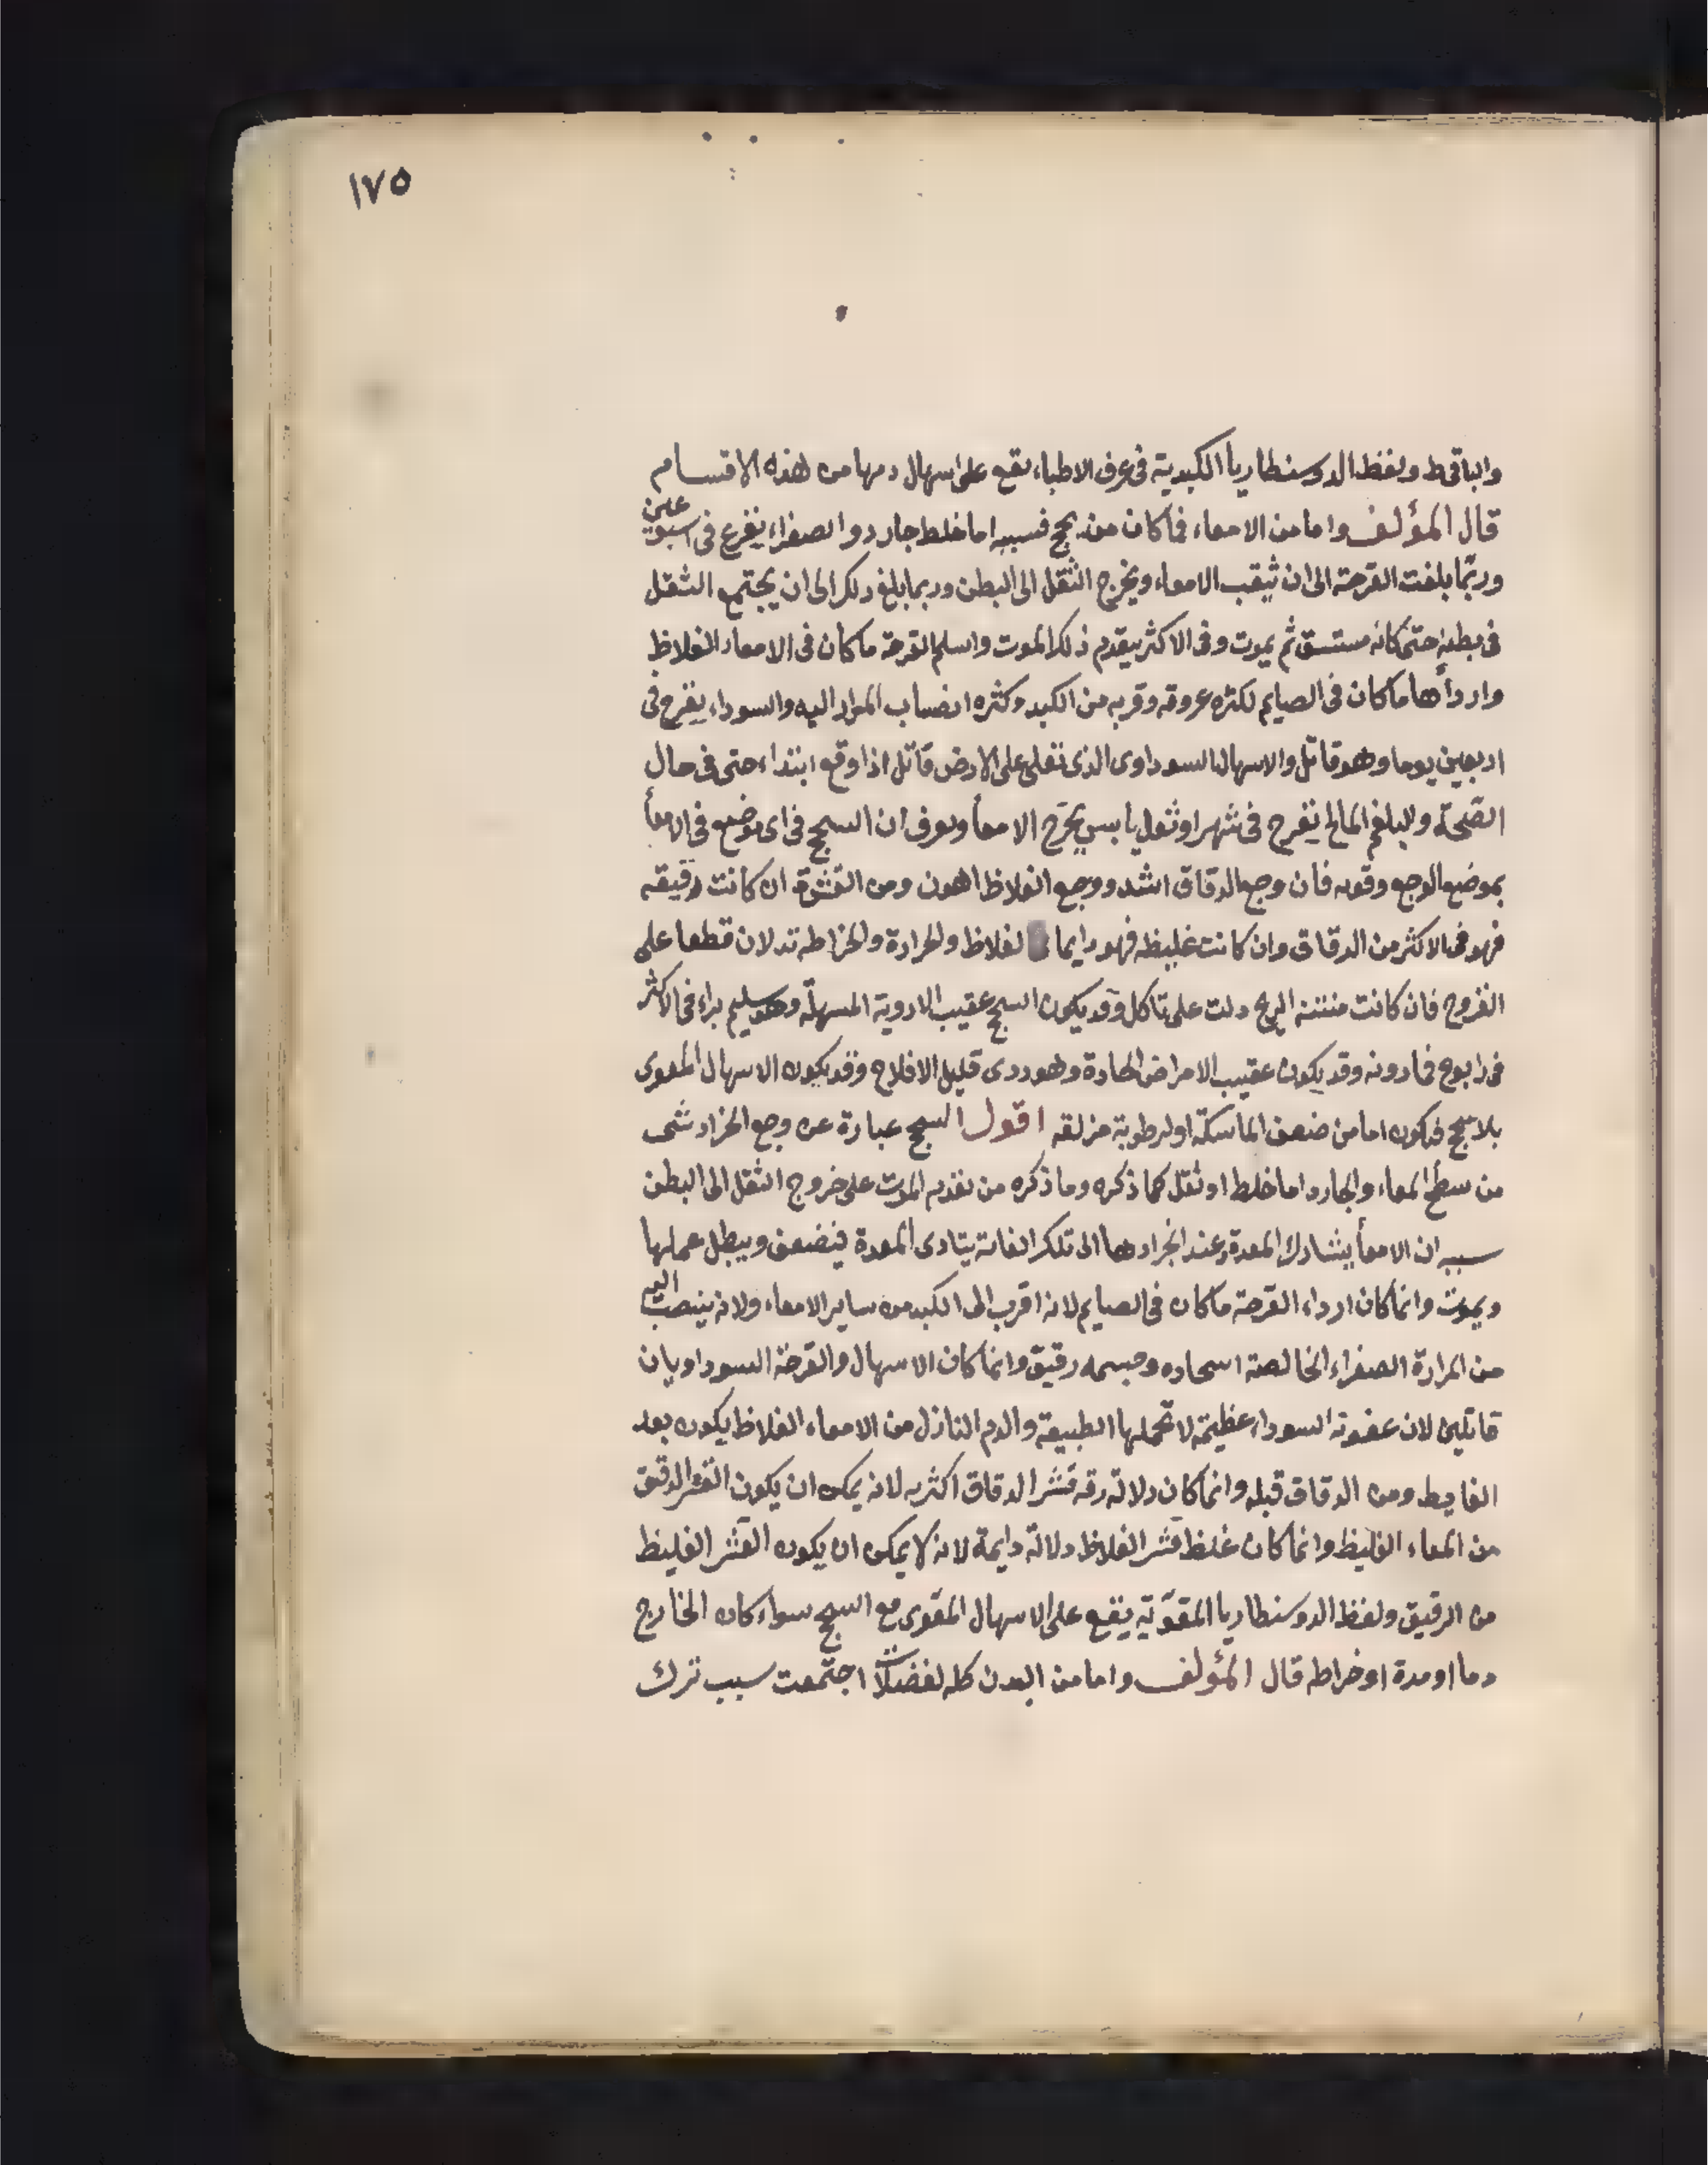 ١٧٥
والباقي ط ولفظ الدوسنطاريا الكبدية في عرف الاطباء يقع على اسهال دمها من هذه الاقسام
قال المؤلف واما من الامعاء فما كان من سحج فسببه اما خلط جارد والصفراء يقرح في اسبوعين
وربّما بلغت القرحة الى ان ثيقب الامعاء ويخرج الثقل الى البطن وربما بلغ ذلك الى ان يجتمع الثقل
في بطنه حتى كانه مستسق ثم يموت وفي الاكثر يقدم ذلك الموت واسلم القرحة ما كان في الامعاء الغلاظ
وارداها ما كان في الصايم لكثره عروقه وقربه من الكبد وكثره انصباب المرار اليه والسوداء يقرح في
اربعين يوما وهو قاتل والاسهال السوداوى الذى تغلى على الارض قاتل اذا وقع ابتداء حتى في حال
الصّحة والبلغم المالح يقرح في شهر او ثفل يابس يجرح الامعأ ويعرف ان السحج في اى موضع في الامعأ
بموضع الوجع وقوته فان وجع الدقاق اشد ووجع الغلاظ اهون ومن القشرة ان كانت رقيقه
فهو في الاكثر من الدقاق وان كانت غليظه فهو دايما لغلاظ والجرادة والخراطه تدلان قطعا على
القروح فان كانت منتنه الريح دلت على تاكل وقد يكون السحج عقيب الادوية المسهلّة وهو سليم براء في الاكثر
في رابوع فما دونه وقد يكون عقيب الامراض الحادة وهو ردى قليل الافلاح وقد يكون الاسهال المعوى
بلا سحج فيكون اما من ضعف الماسكة او لرطوبة مزلقه اقول السحج عبارة عن وجع انجراد شى
من سطح المعاء والجارد اما خلط او ثقل كما ذكره وما ذكره من تقدم الموت على خروج الثقل الى البطن
سببه ان الامعأ يشارك المعدة وعند انجرادها الى تلك الغاية يتادى المعدة فيضعف ويبطل عملها
ويموت وانما كان ارداء القرحة ما كان في الصايم لانه اقرب الى الكبد من ساير الامعاء ولانه ينصب اليه
من المرارة الصفراء الخالصة وجسمه رقيق وانما كان الاسهال والقرحة السوداويان
قاتلين لان عفونة السوداء عظيمة لا تحملها الطبيعة والدم النازل من الامعاء الغلاظ يكون بعد
الغايط ومن الدقاق قبله وانما كان دلالة رقه قشر الدقاق اكثريه لانه يمكن ان يكون القشر الدقيق
من المعاء الغليظ وانما كان غلظ قشر الغلاظ دلالة دايمة لانه لا يمكن ان يكون القشر الغليظ
من الرقيق ولفظ الدوسنطاريا المقوّيّه يقع على الاسهال المقوى مع السحج سواء كان الخارج
دما او مدة او خراطه قال المؤلف واما من البدن كله لفضلات اجتمعت سبب ترك